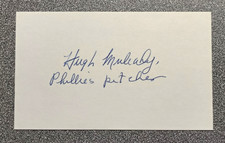 Hugh Mulcahy,
Phillies pitcher